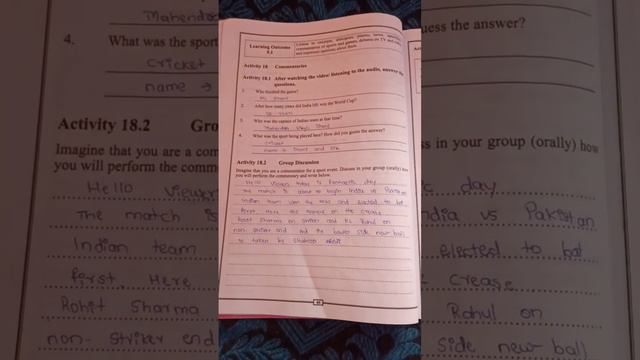 Mahendra
4. What was the sport
cricket
name →
Activity 18.2 Gro
Imagine that you are a com
you will perform the comme
Hello Viewer
The match is
Indian team
first. Here
Rohit Sharma
non- striker end
Learning Outcome
Activity 18 Commentaries
Activity 18.1 After watching the video/ listening to the audio, answer the
questions.
1. Who finished the game?
2. After how many years did India lift won the World Cup?
3. Who was the captain of Indian team at that time?
4. What was the sport being played here? How did you guess the answer?
cricket
Activity 18.2 Group Discussion
Imagine that you are a commentator for a sport event. Discuss in your group (orally) how
you will perform the commentary and write below.
Hello Viewers today is fantastic day
The match is about to begin India vs Pakistan
Indian team won the toss and elected to bat
first. Here the openers on the crease
Rohit Sharma on striker and KL Rahul on
non- striker end and the bowler side new ball
uess the answer?
ss in your group (orally) how
c day
ndia vs Pakistan
elected to bat
crease
Rahul on
side new ball